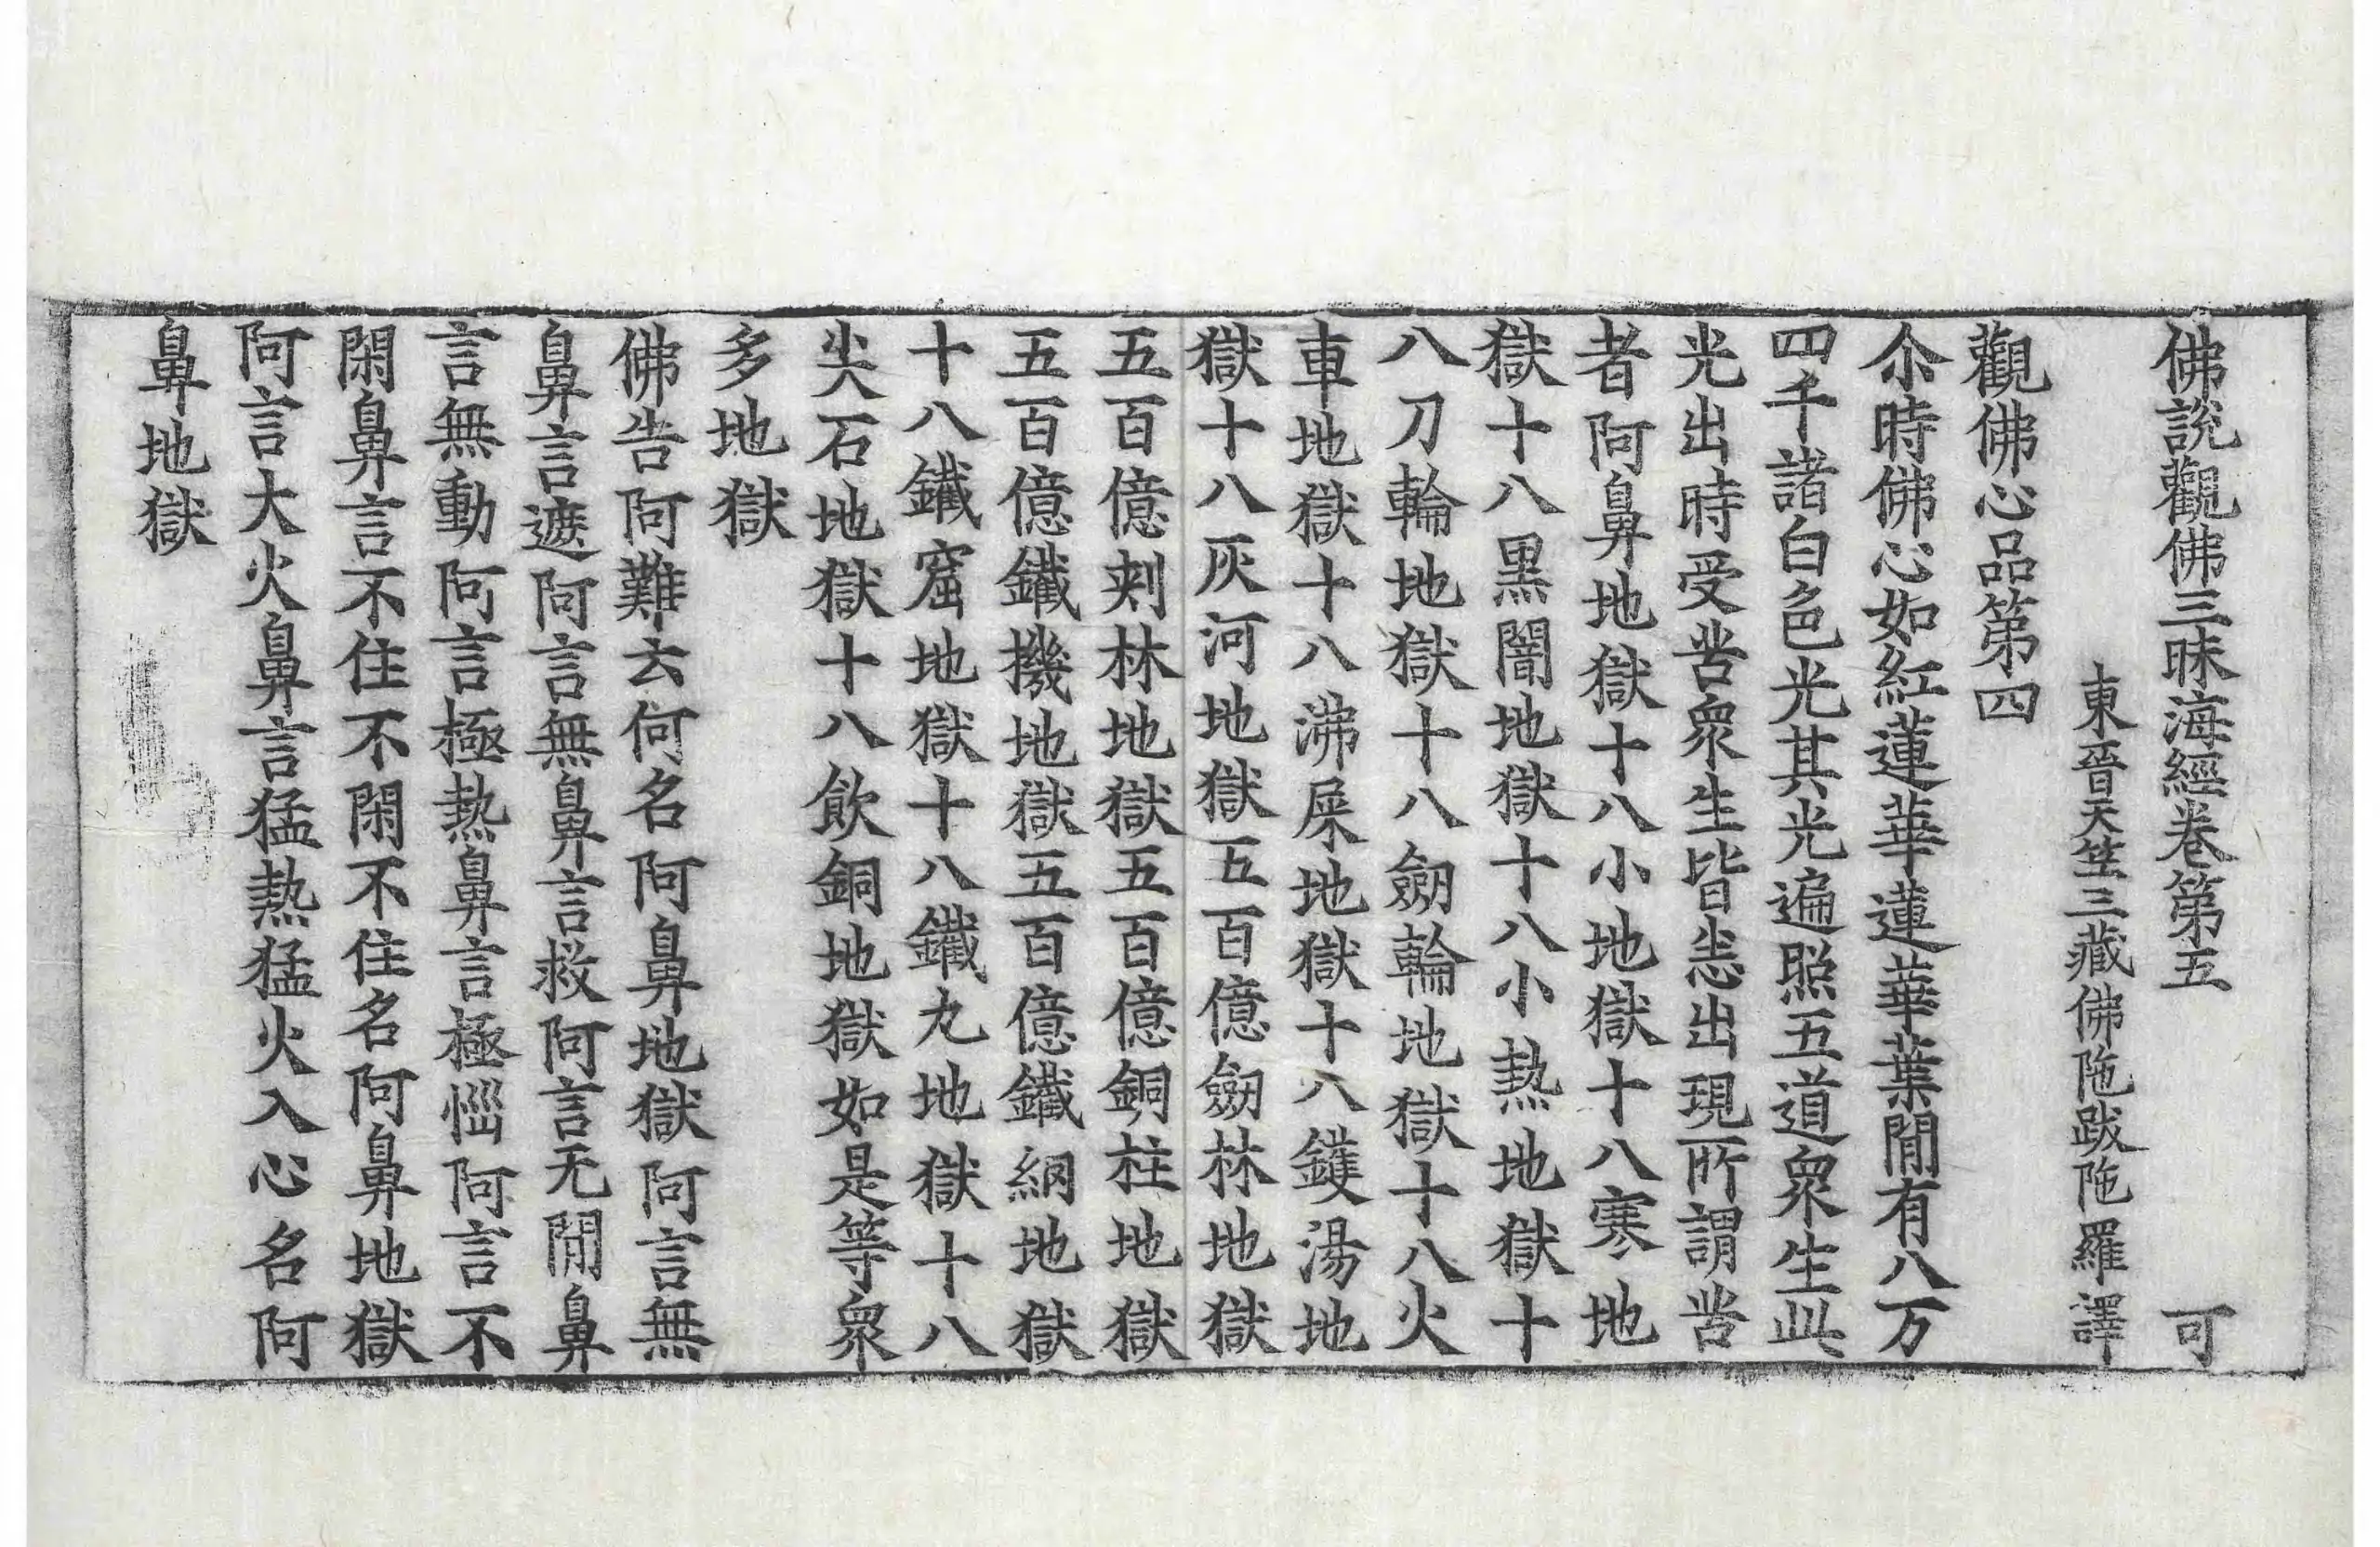 佛說觀佛三昧海經卷第五 可
東晉天竺三藏佛陁跋陁羅譯
觀佛心品第四
尒時佛心如紅蓮華蓮華葉閒有八万
四千諸白色光其光遍照五道衆生此
光出時受苦衆生皆悉出現所謂苦
者阿鼻地獄十八小地獄十八寒地
獄十八黑闇地獄十八小熱地獄十
八刀輪地獄十八劒輪地獄十八火
車地獄十八沸屎地獄十八鑊湯地
獄十八灰河地獄五百億劒林地獄
五百億刺林地獄五百億銅柱地獄
五百億鐵機地獄五百億鐵網地獄
十八鐵窟地獄十八鐵丸地獄十八
尖石地獄十八飮銅地獄如是等衆
多地獄
佛告阿難云何名阿鼻地獄阿言無
鼻言遮阿言無鼻言救阿言无閒鼻
言無動阿言極熱鼻言極惱阿言不
閑鼻言不住不閑不住名阿鼻地獄
阿言大火鼻言猛熱猛火入心名阿
鼻地獄